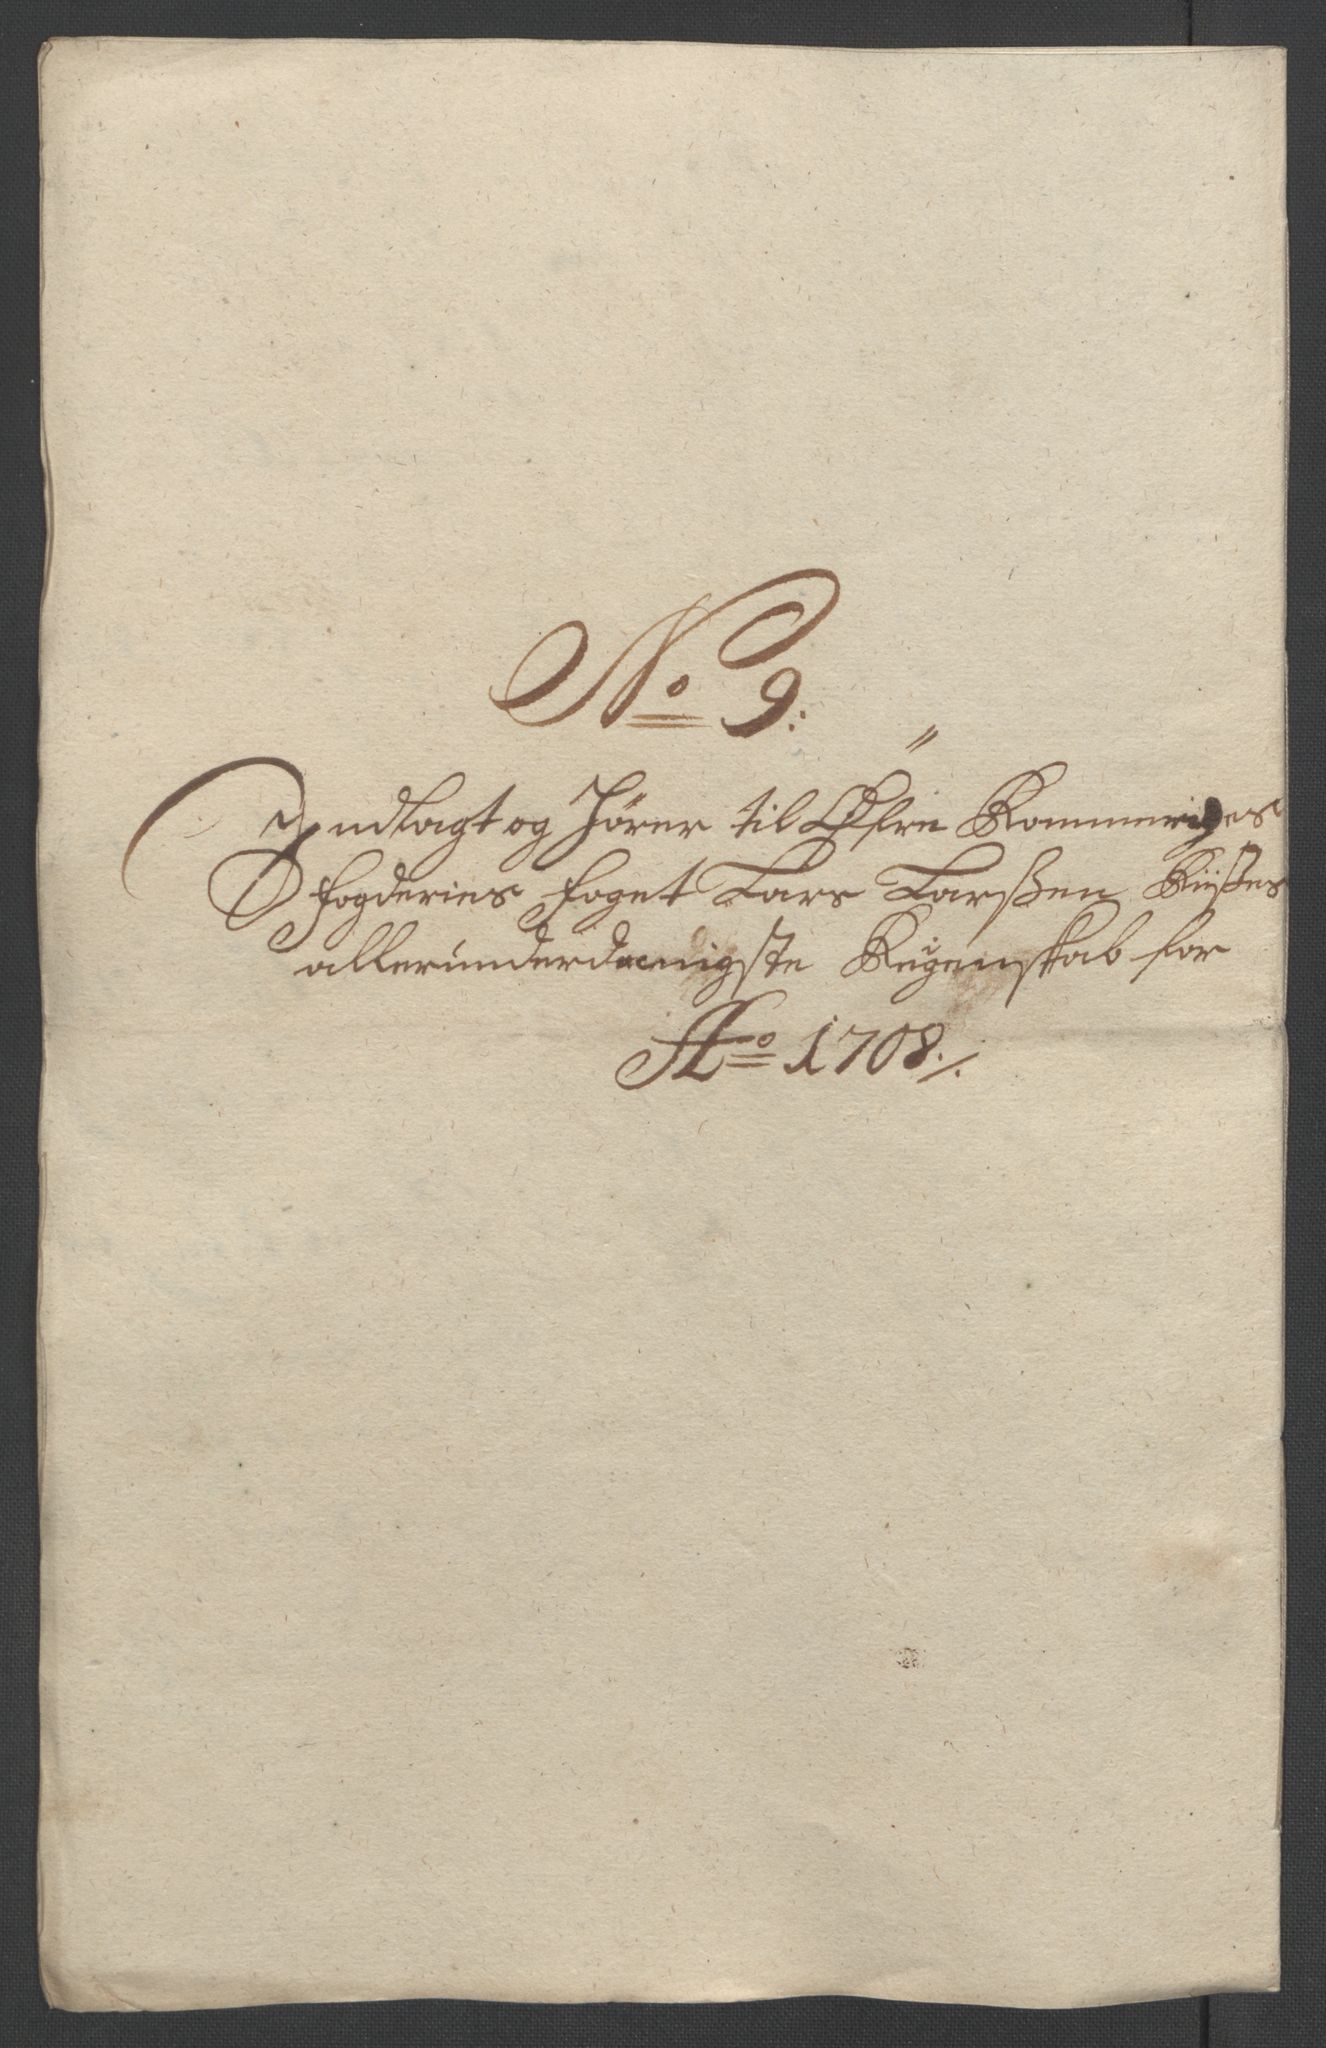 No 9:
Indlagt og Hører til Øfre Rommeriges
fogderies foget Lars Larsßen Riißes
allerunderdaenigste Regenskab for
Ao 1708./.